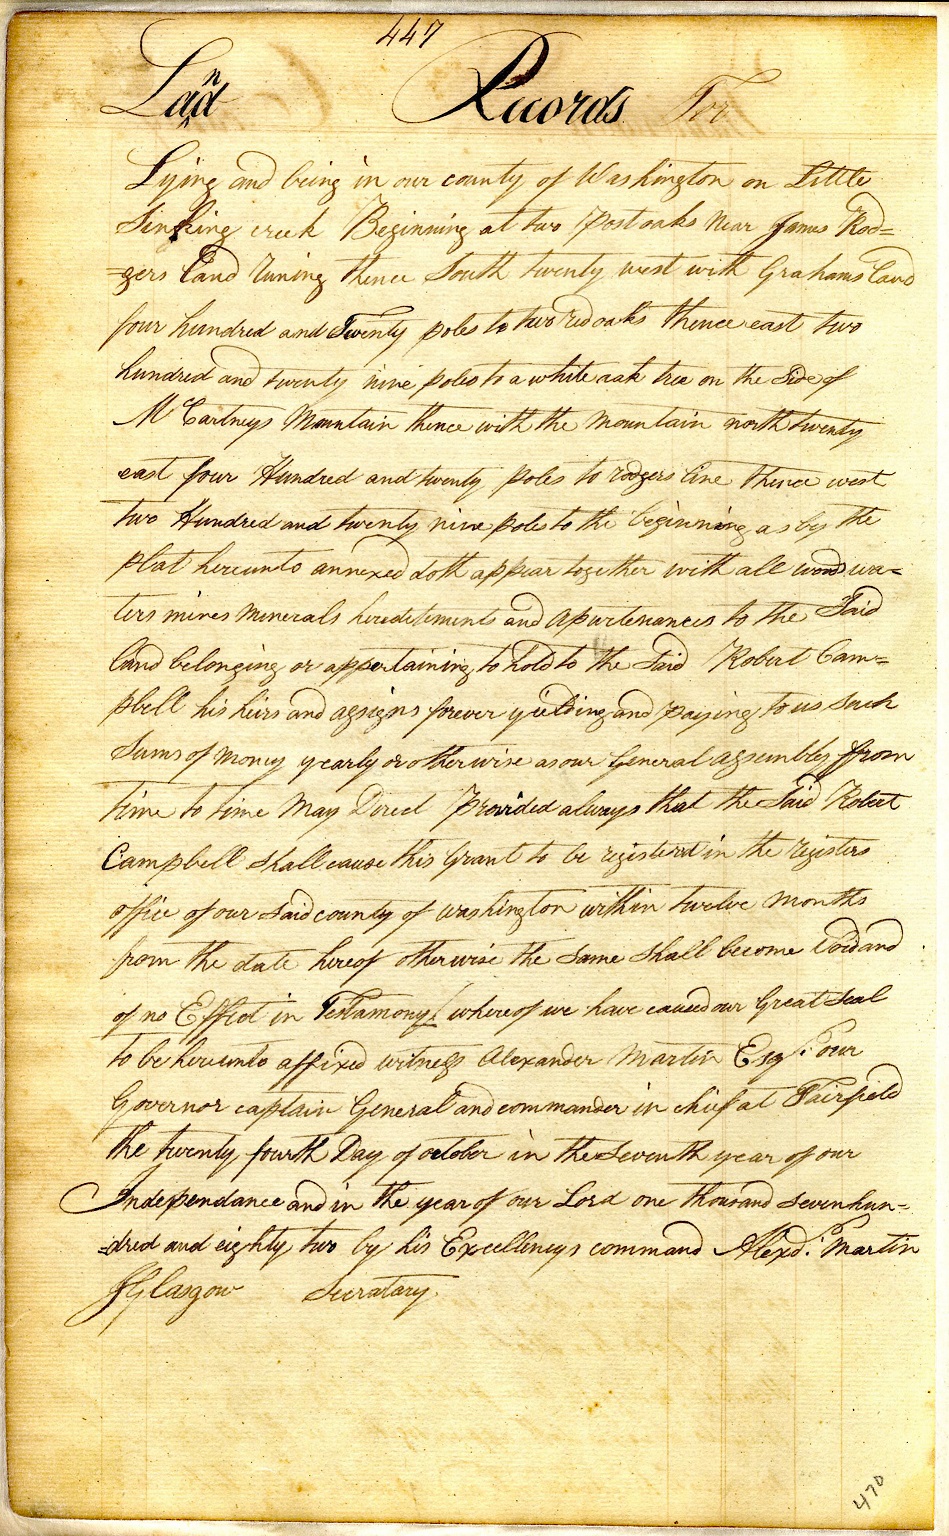 447
Land Records For
Lying and being in our county of Washington on Little
Sinking creek Beginning at two Postoaks Near James Rod=
=gers Land Runing thence South twenty west with Grahams Land
four hundred and Twenty poles to two red oaks thence east two
hundred and twenty nine poles to a white oak tree on the Side of
Mc Cartneys Mountain thence with the Mountain north twenty
east four Hundred and twenty poles to rodgers line thence west
two Hundred and twenty nine poles to the beginning as by the
plat hereunto annexed doth appear together with all woods wa=
ters mines minerals hereditements and Apurtenances to the Said
Land belonging or appertaining to hold to the Said Robert Cam=
pbell his heirs and assigns forever yielding and paying to us Such
Sums of money yearly or otherwise as our General assembly from
time to time May Direct Provided always that the Said Robert
Campbell Shall cause this Grant to be registered in the registers
office of our Said county of Washington within twelve Months
from the date hereof otherwise the Same Shall become Void and
of no Effect in Testamony whereof we have caused our Great Seal
to be hereunto affixed witness Alexander Martin Esqr. our
Governor captain General and commander in chief at Fairfield
the twenty fourth Day of october in the Seventh year of our
Independance and in the year of our Lord one thousand seven hun=
=dred and eighty two by his Excellencys command Alexd. Martin
J Glasgow Secratary
470